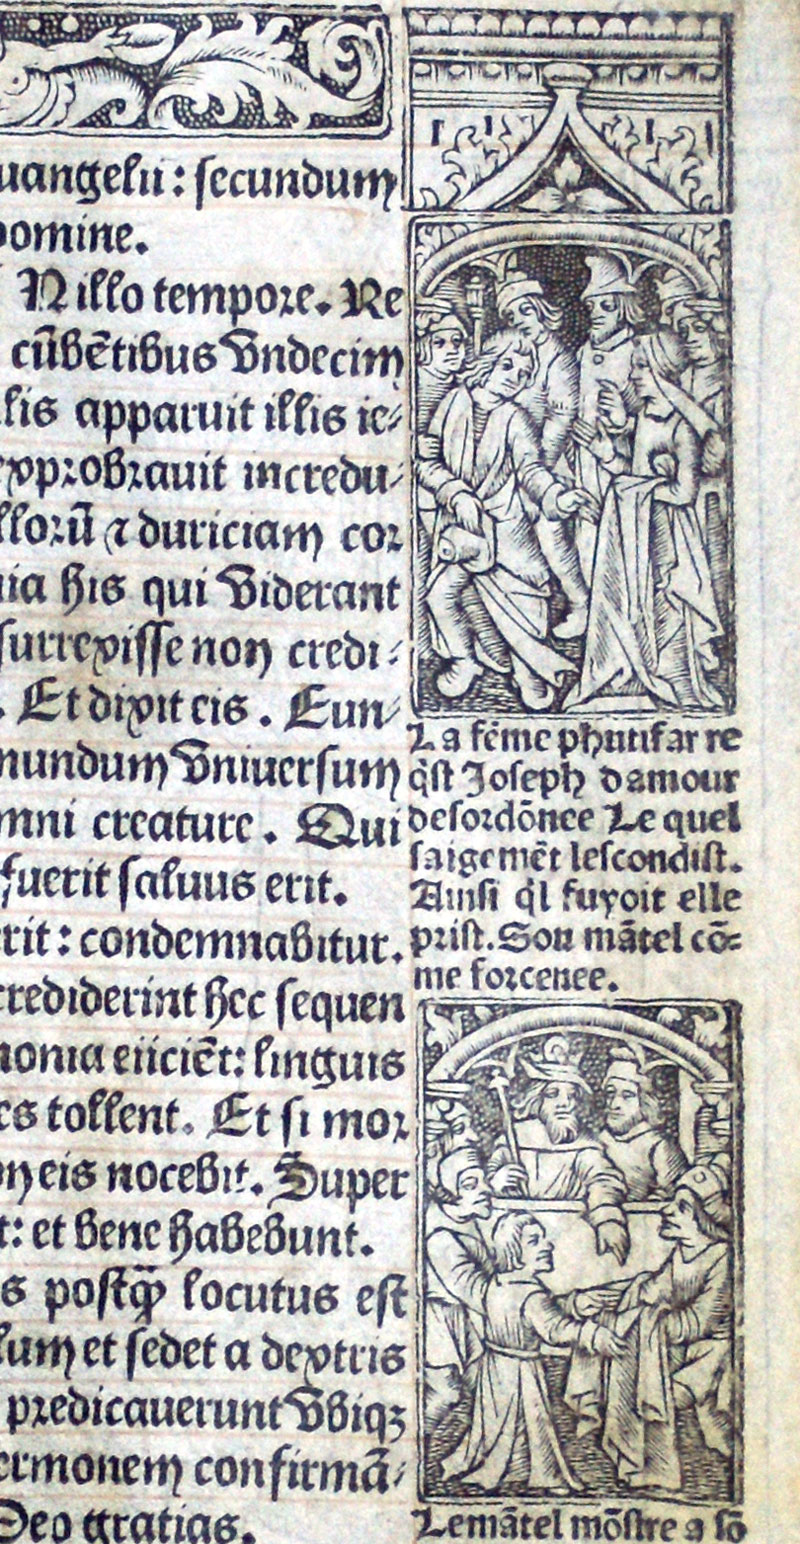 uangelii: secundum
domine.
N illo tempore. Re
cūbētibus Undecim
lis apparuit illis ie-
exprobrauit incredu-
lloꝝ ⁊ duriciam cor
uia his qui Viderant
surrexisse non credi-
. Et dixit eis. Eun-
mundum Vniuersum
mni creature. Qui
fuerit saluus erit.
rit: condemnabitur.
crediderint hec sequen
monia eiiciēt: linguis
es tollent. Et si mor
n eis nocebit. Super
t: et bene habebunt.
s postꝙ̄ locutus est
lum et sedet a dextris
predicauerunt Vbiqꝫ
ermonem confirmā-
Deo gratias.
La fēme phutifar re
q̄st Joseph damour
desordōnee Le quel
saigemēt lescondist.
Ainsi q̄l fuyoit elle
prist. Son mātel cō-
me forcenee.
Le mātel mōstre a sō